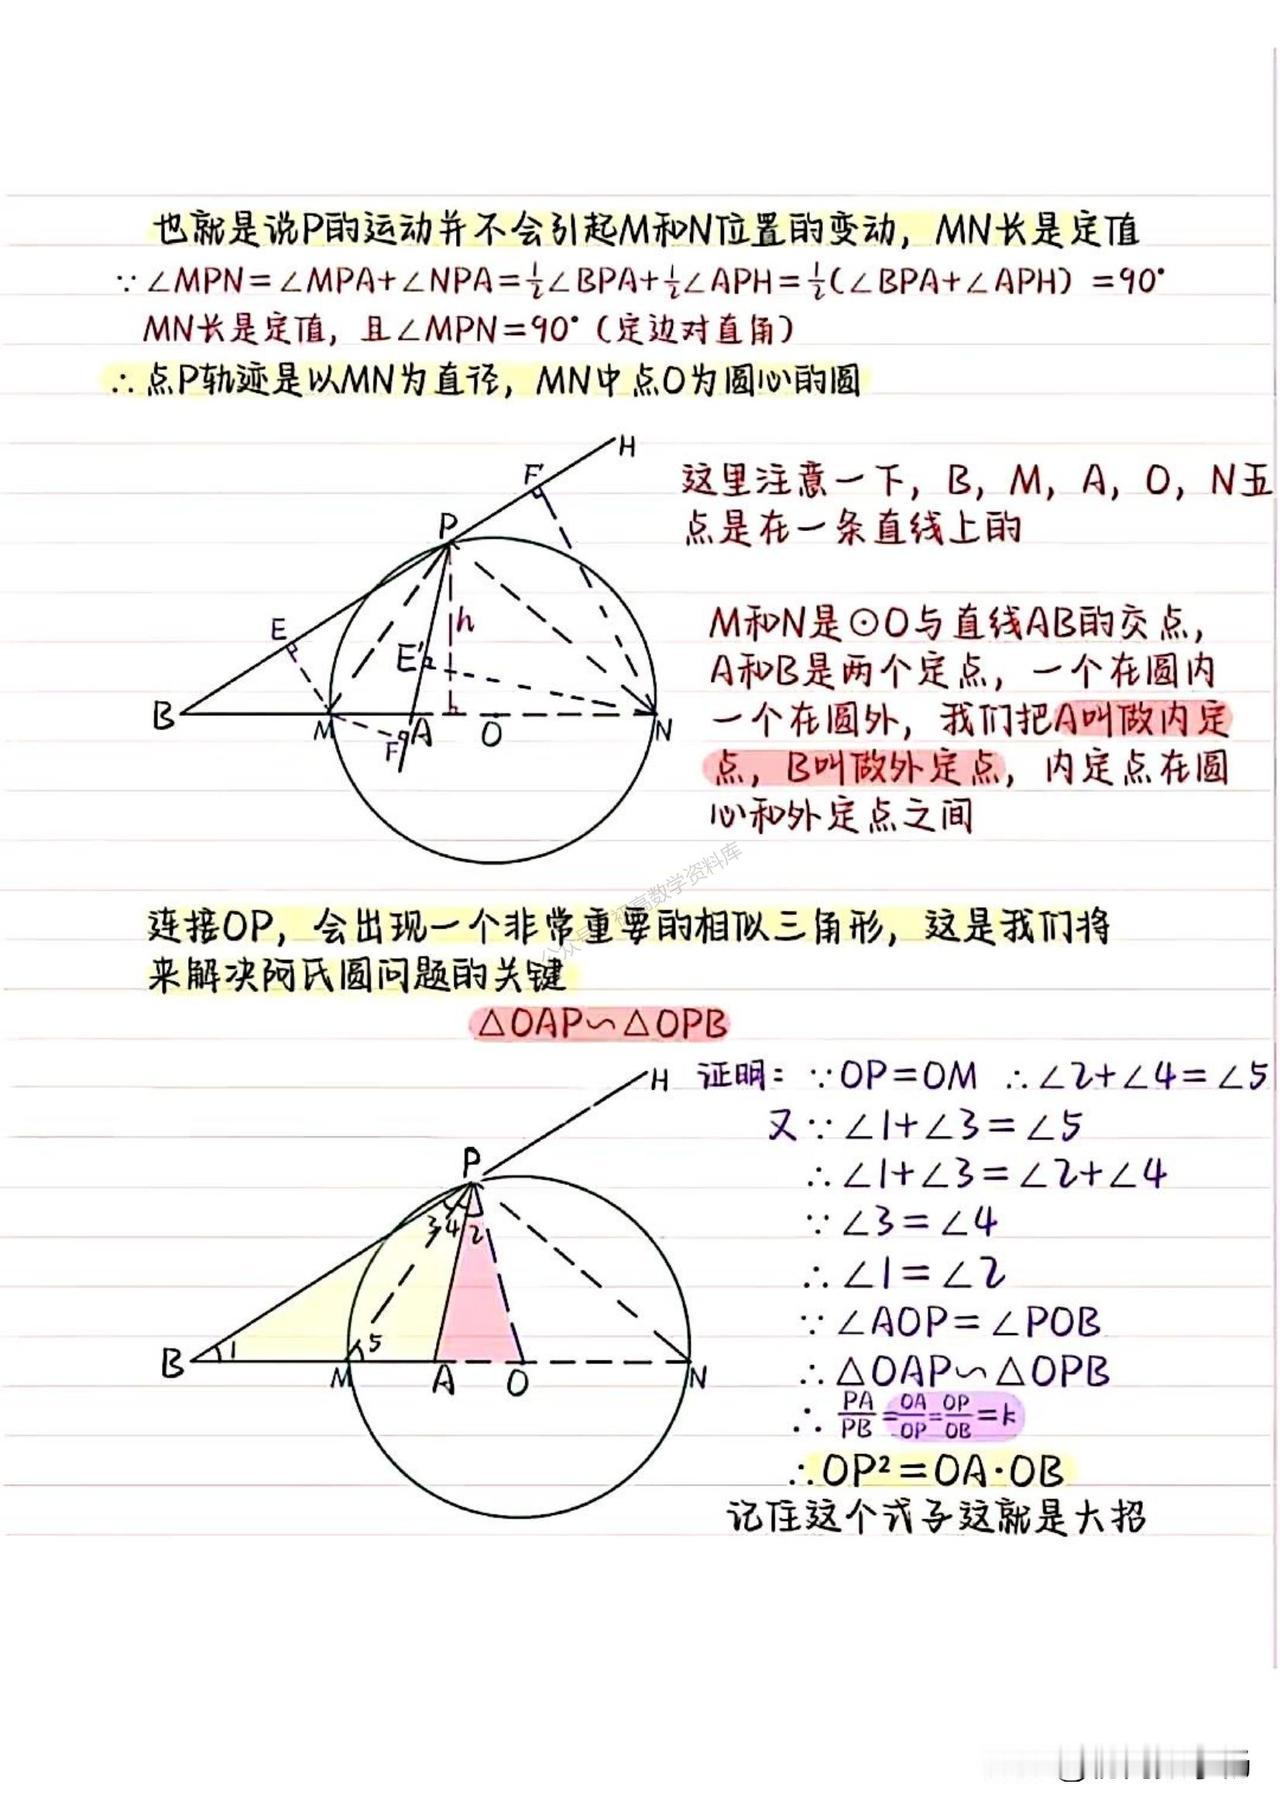 也就是说P的运动并不会引起M和N位置的变动，MN长是定值
∵∠MPN=∠MPA+∠NPA=½∠BPA+½∠APH=½(∠BPA+∠APH)=90°
MN长是定值，且∠MPN=90°（定边对直角）
∴点P轨迹是以MN为直径，MN中点O为圆心的圆
H
F'
P
E
h
E'
B
M
F
A
O
N
这里注意一下，B，M，A，O，N五
点是在一条直线上的
M和N是⊙O与直线AB的交点，
A和B是两个定点，一个在圆内
一个在圆外，我们把A叫做内定
点，B叫做外定点，内定点在圆
心和外定点之间
公众号：初高数学资料库
连接OP，会出现一个非常重要的相似三角形，这是我们将
来解决阿氏圆问题的关键
△OAP∽△OPB
H
P
3 4 2
B 1
M 5
A
O
N
证明：∵OP=OM ∴∠2+∠4=∠5
又∵∠1+∠3=∠5
∴∠1+∠3=∠2+∠4
∵∠3=∠4
∴∠1=∠2
∵∠AOP=∠POB
∴△OAP∽△OPB
∴PA/PB=OA/OP=OP/OB=k
∴OP²=OA·OB
记住这个式子这就是大招